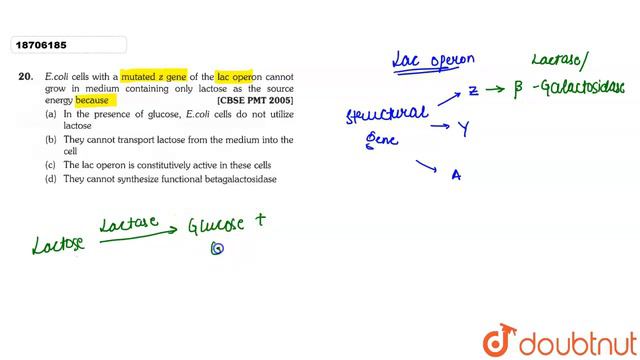 18706185
20. E.coli cells with a mutated z gene of the lac operon cannot
grow in medium containing only lactose as the source
energy because [CBSE PMT 2005]
(a) In the presence of glucose, E.coli cells do not utilize
lactose
(b) They cannot transport lactose from the medium into the
cell
(c) The lac operon is constitutively active in these cells
(d) They cannot synthesize functional betagalactosidase
Lac operon
Lactase/
Z → β -Galactosidase
Structural
gene
Y
A
Lactose Lactase → Glucose +
G
doubtnut